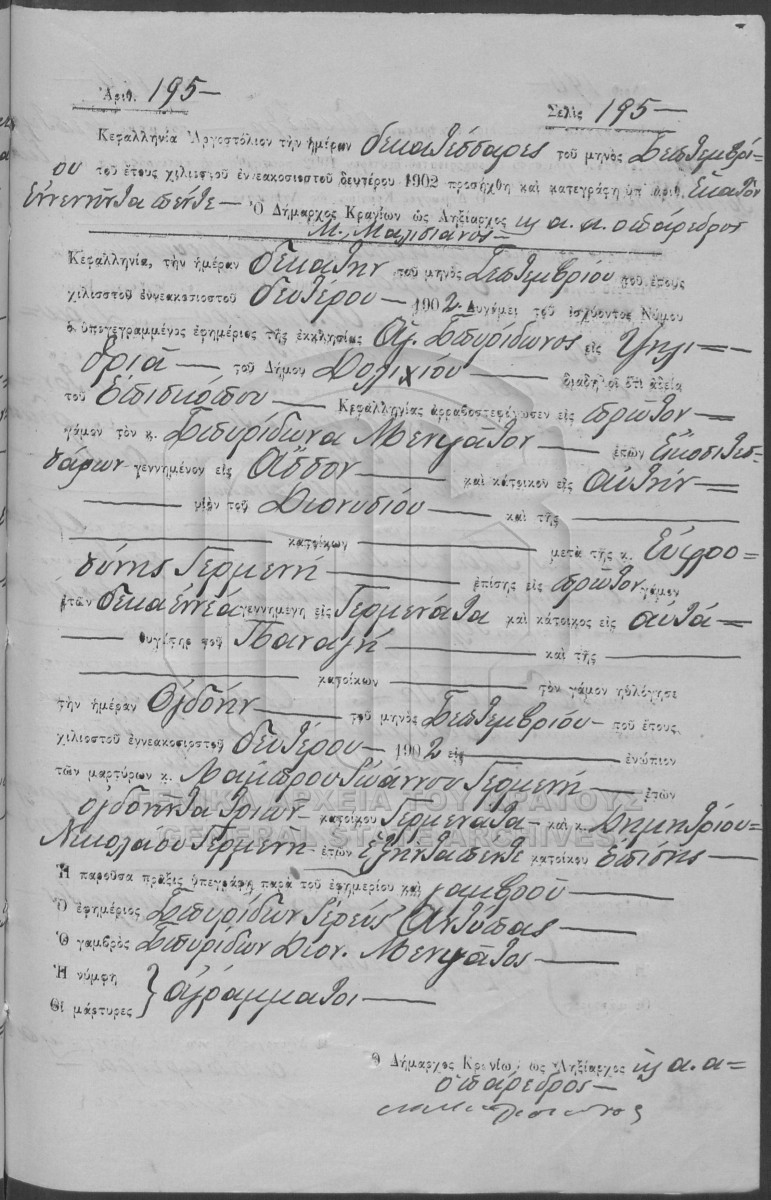 Ἀριθ. 195 —
Σελὶς 195 —
Κεφαλληνία Ἀργοστόλιον τὴν ἡμέραν δεκατέσσαρες τοῦ μηνὸς Σεπτεμβρί=
ου τοῦ ἔτους χιλιοστοῦ ἐννεακοσιοστοῦ δευτέρου 1902 προσήχθη καὶ κατεγράφη ὑπ' ἀριθ. Ἑκατὸν
Ἐννενῆντα πέντε — Ὁ Δήμαρχος Κρανίων ὡς Ληξίαρχος κ. α. α. ὁ πάρεδρος
Κεφαλληνία, τὴν ἡμέραν δεκάτην τοῦ μηνὸς Σεπτεμβρίου τοῦ ἔτους
χιλιοστοῦ ἐννεακοσιοστοῦ δευτέρου — 1902. Δυνάμει τοῦ ἰσχύοντος Νόμου
ὁ ὑπογεγραμμένος ἐφημέριος τῆς ἐκκλησίας Ἁγ. Σπυρίδωνος εἰς Ψηλι=
θριᾶ — τοῦ Δήμου Δολιχίου — διαδηλοῖ ὅτι ἀδείᾳ
τοῦ Ἐπισκόπου — Κεφαλληνίας ἀρραβοστεφάνωσεν εἰς πρῶτον —
γάμον τὸν κ. Σπυρίδωνα Μενγᾶτον — ἐτῶν Εἰκοσιτεσ=
σάρων γεννημένον εἰς Αὖσον — καὶ κάτοικον εἰς αὐτὴν —
— υἱὸν τοῦ Διονυσίου — καὶ τῆς —
— κατοίκων — μετὰ τῆς κ. Εὐφρο=
σύνης Γερμενῆ — ἐπίσης εἰς πρῶτον γάμον
ἐτῶν δεκαεννέα γεννημένη εἰς Γερμενάτα καὶ κάτοικος εἰς αὐτὰ —
— θυγάτηρ τοῦ Παναγῆ — καὶ τῆς —
— κατοίκων — τὸν γάμον ηὐλόγησε
τὴν ἡμέραν Ὀγδόην — τοῦ μηνὸς Σεπτεμβρίου — τοῦ ἔτους
χιλιοστοῦ ἐννεακοσιοστοῦ δευτέρου — 1902 εἰς — ἐνώπιον
τῶν μαρτύρων κ. Λάμπρου Ἰωάννου Γερμενῆ — ἐτῶν
ὀγδοῆντα τριῶν — κατοίκου Γερμενάτα — καὶ κ. Δημητρίου —
Νικολάου Γερμενῆ — ἐτῶν Ἑξῆντα πέντε κατοίκου ἐπίσης —
Ἡ παροῦσα πρᾶξις ὑπεγράφη παρὰ τοῦ ἐφημερίου καὶ γαμβροῦ —
Ὁ ἐφημέριος Σπυρίδων Ἱερεὺς Ἀντύπας —
Ὁ γαμβρὸς Σπυρίδων Διον. Μενγᾶτος —
Ἡ νύμφη
Οἱ μάρτυρες } ἀγράμματοι —
Ὁ Δήμαρχος Κρανίων ὡς Ληξίαρχος κ. α. α=
ὁ πάρεδρος —
ΓΕΝΙΚΑ ΑΡΧΕΙΑ ΤΟΥ ΚΡΑΤΟΥΣ
GENERAL STATE ARCHIVES